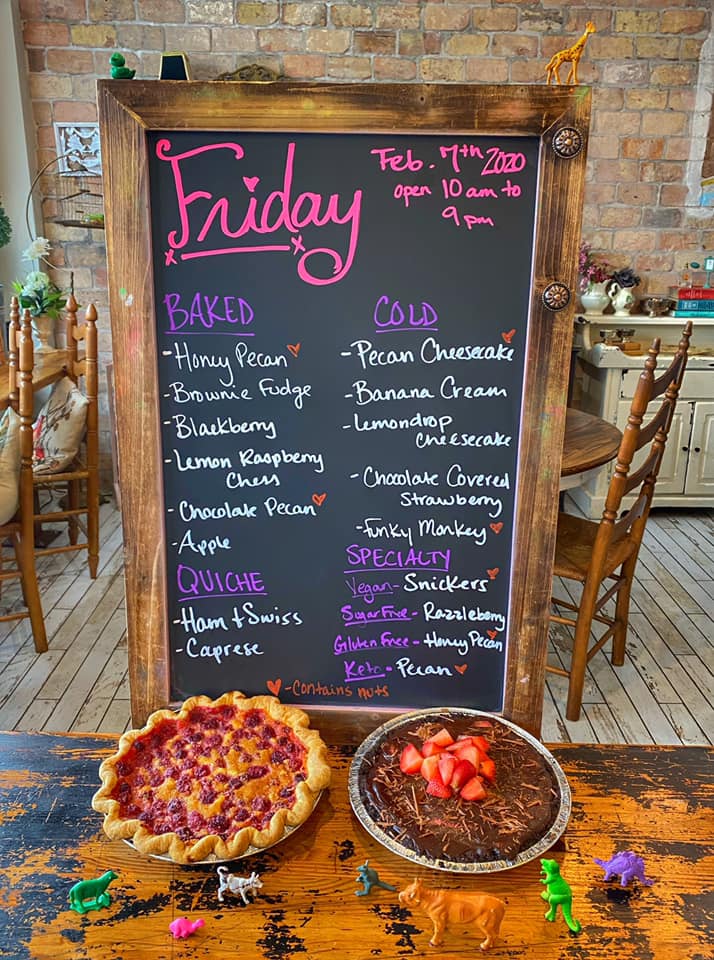 Friday
Feb. 7th 2020
open 10 am to
9 pm
BAKED
- Honey Pecan
- Brownie Fudge
- Blackberry
- Lemon Raspberry
Chess
- Chocolate Pecan
- Apple
QUICHE
- Ham + Swiss
- Caprese
COLD
- Pecan Cheesecake
- Banana Cream
- Lemondrop
Cheesecake
- Chocolate Covered
Strawberry
- Funky Monkey
SPECIALTY
Vegan - Snickers
Sugar Free - Razzleberry
Gluten Free - Honey Pecan
Keto - Pecan
- Contains nuts